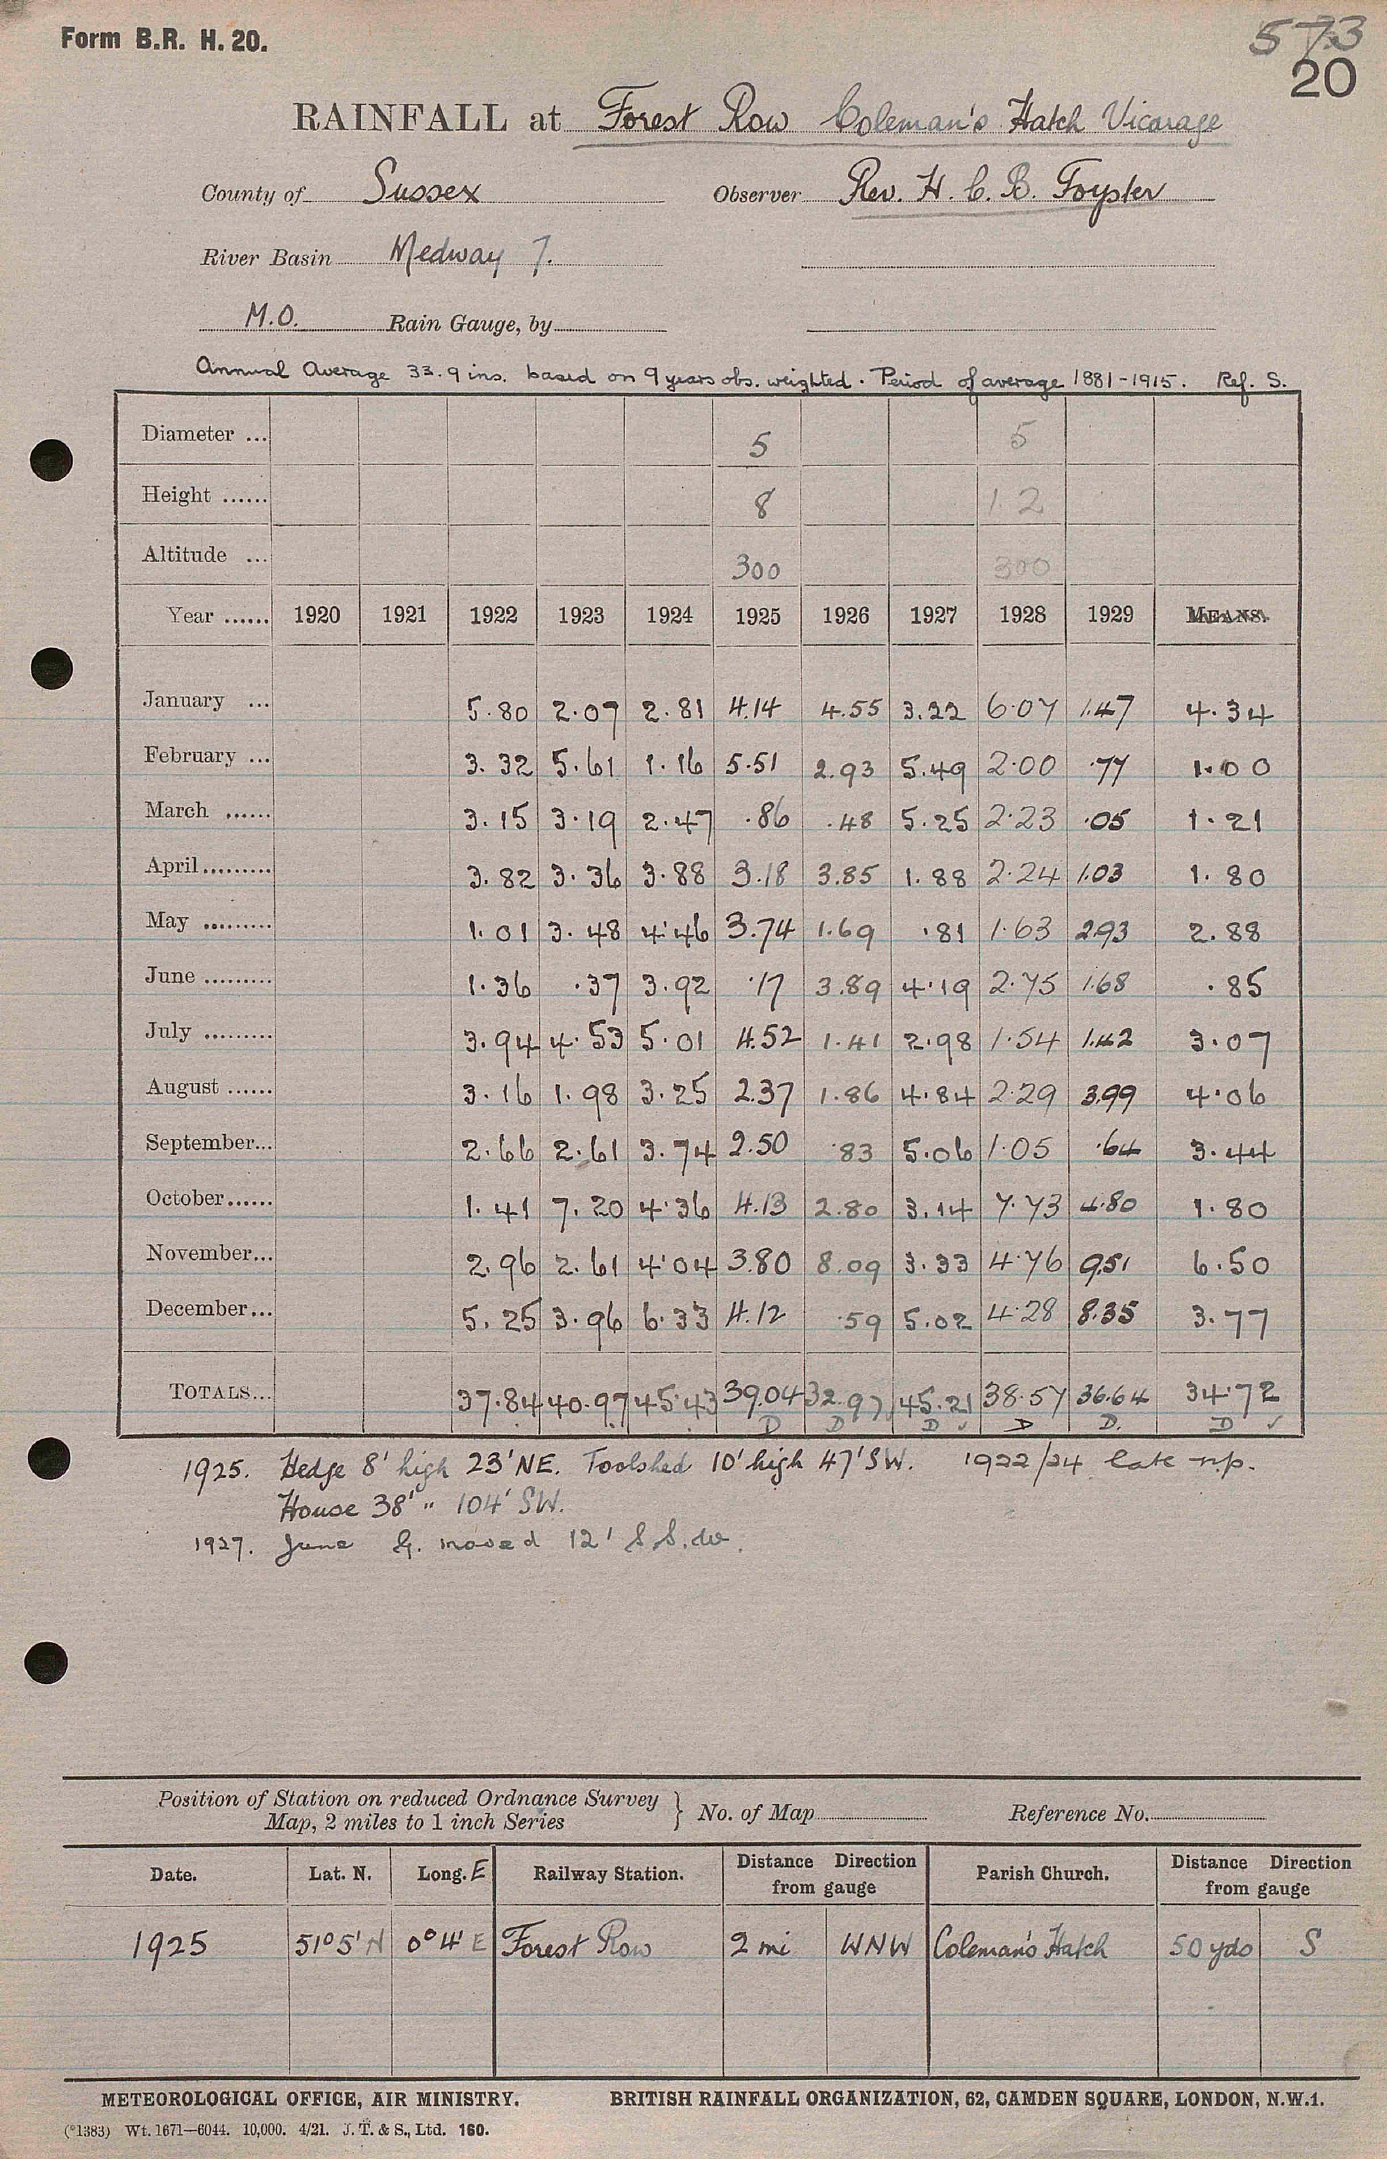 Form B.R. H. 20.
573
20
RAINFALL at Forest Row Coleman's Hatch Vicarage
County of Sussex Observer Rev. H. C. B. Foyster
River Basin Medway 7.
M.O. Rain Gauge, by
Annual Average 33.9 ins. based on 9 years obs. weighted. Period of average 1881-1915. Ref. S.
Diameter ... 5 5
Height ...... 8 12
Altitude ... 300 300
Year ...... 1920 1921 1922 1923 1924 1925 1926 1927 1928 1929 MEANS.
January ... 5.80 2.07 2.81 4.14 4.55 3.22 6.07 1.47 4.34
February ... 3.32 5.61 1.16 5.51 2.93 5.49 2.00 .77 1.00
March ...... 3.15 3.19 2.47 .86 .48 5.25 2.23 .05 1.21
April ......... 3.82 3.36 3.88 3.18 3.85 1.88 2.24 1.03 1.80
May ......... 1.01 3.48 4.46 3.74 1.69 .81 1.63 2.93 2.88
June ......... 1.36 .37 3.92 .17 3.89 4.19 2.75 1.68 .85
July ......... 3.94 4.53 5.01 4.52 1.41 2.98 1.54 1.42 3.07
August ...... 3.16 1.98 3.25 2.37 1.86 4.84 2.29 3.99 4.06
September... 2.66 2.61 3.74 2.50 .83 5.06 1.05 .64 3.44
October...... 1.41 7.20 4.36 4.13 2.80 3.14 7.73 4.80 1.80
November... 2.96 2.61 4.04 3.80 8.09 3.33 4.76 9.51 6.50
December... 5.25 3.96 6.33 4.12 .59 5.02 4.28 8.35 3.77
TOTALS... 37.84 40.97 45.43 39.04 32.97 45.21 38.57 36.64 34.72
D D D ✓ D D. D ✓
1925. Hedge 8' high 23' NE. Toolshed 10' high 47' SW. 1922/24 late n.p.
House 38' " 104' SW.
1927. June G. moved 12' S S.W.
Position of Station on reduced Ordnance Survey
Map, 2 miles to 1 inch Series } No. of Map Reference No.
Date. Lat. N. Long. E Railway Station. Distance Direction from gauge Parish Church. Distance Direction from gauge
1925 51° 5' N 0° 4' E Forest Row 2 mi WNW Coleman's Hatch 50 yds S
METEOROLOGICAL OFFICE, AIR MINISTRY. BRITISH RAINFALL ORGANIZATION, 62, CAMDEN SQUARE, LONDON, N.W.1.
(*1383) Wt. 1671—6044. 10,000. 4/21. J. T. & S., Ltd. 160.